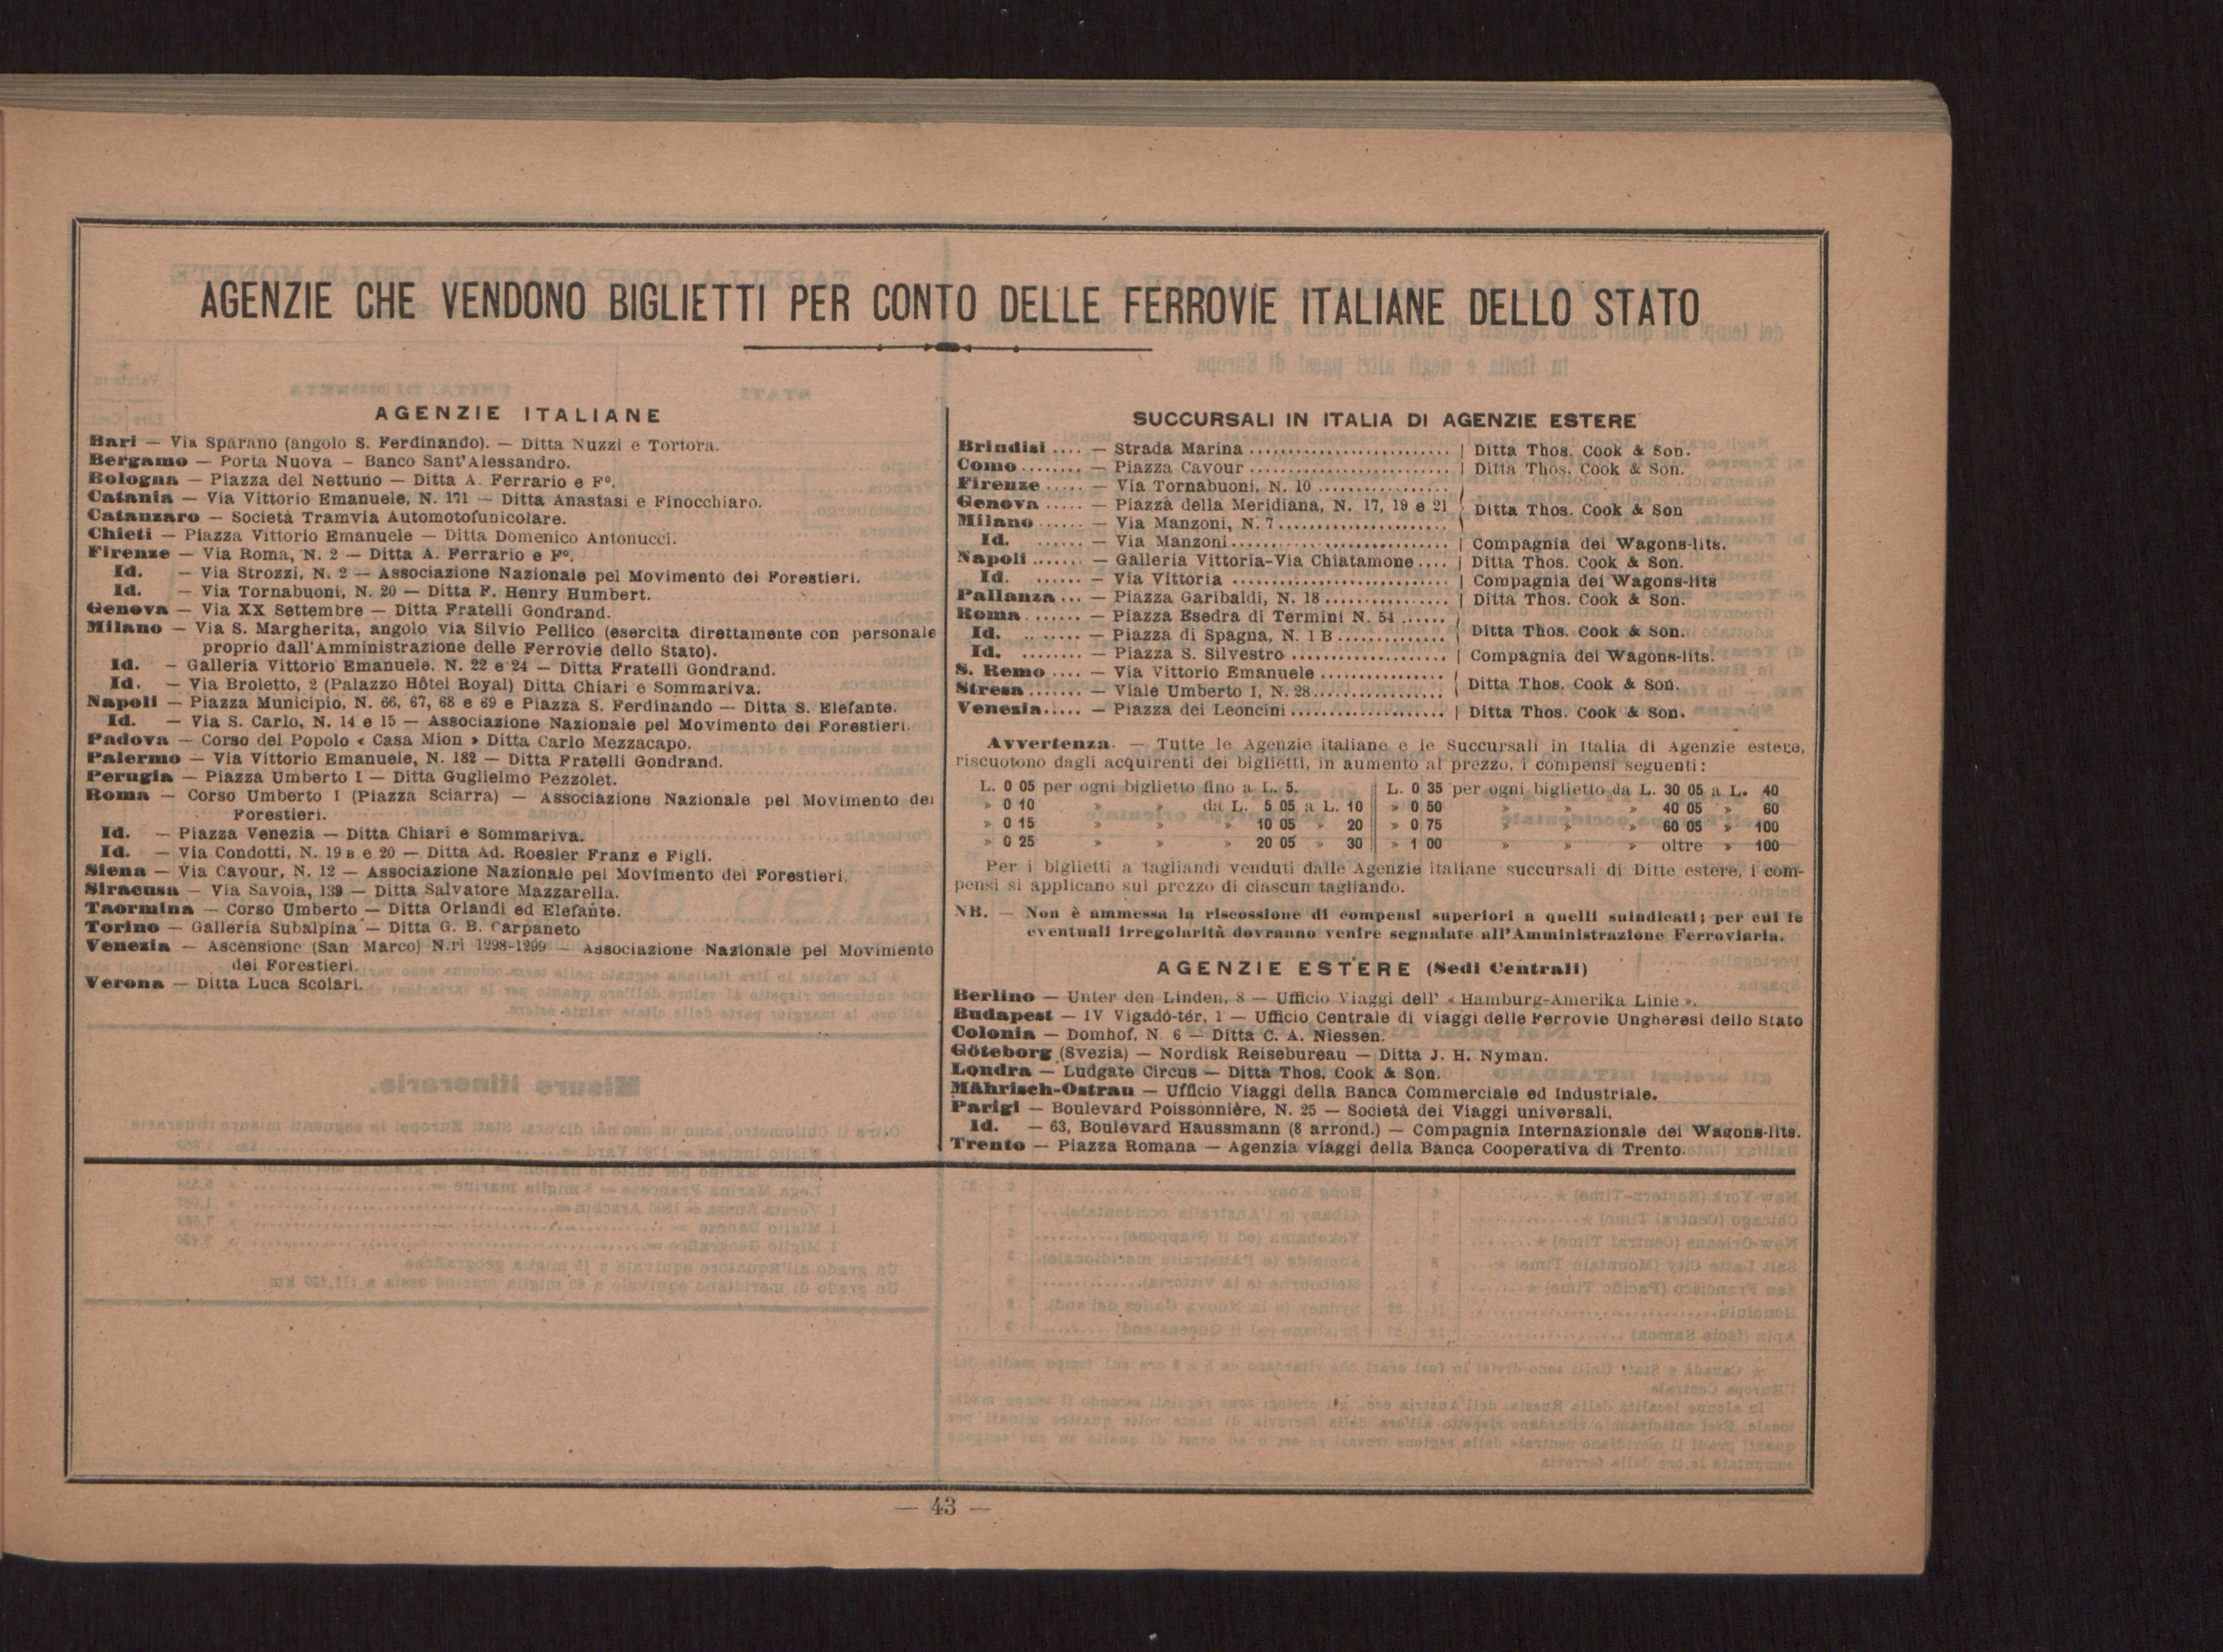 AGENZIE CHE VENDONO BIGLIETTI PER CONTO DELLE FERROVIE ITALIANE DELLO STATO
AGENZIE ITALIANE
Bari — Via Sparano (angolo S. Ferdinando). — Ditta Nuzzi e Tortora.
Bergamo — Porta Nuova — Banco Sant'Alessandro.
Bologna — Piazza del Nettuno — Ditta A. Ferrario e Fº.
Catania — Via Vittorio Emanuele, N. 171 — Ditta Anastasi e Finocchiaro.
Catanzaro — Società Tramvia Automotofunicolare.
Chieti — Piazza Vittorio Emanuele — Ditta Domenico Antonucci.
Firenze — Via Roma, N. 2 — Ditta A. Ferrario e Fº.
Id. — Via Strozzi, N. 2 — Associazione Nazionale pel Movimento dei Forestieri.
Id. — Via Tornabuoni, N. 20 — Ditta F. Henry Humbert.
Genova — Via XX Settembre — Ditta Fratelli Gondrand.
Milano — Via S. Margherita, angolo via Silvio Pellico (esercita direttamente con personale
proprio dall'Amministrazione delle Ferrovie dello Stato).
Id. — Galleria Vittorio Emanuele, N. 22 e 24 — Ditta Fratelli Gondrand.
Id. — Via Broletto, 2 (Palazzo Hôtel Royal) Ditta Chiari e Sommariva.
Napoli — Piazza Municipio, N. 66, 67, 68 e 69 e Piazza S. Ferdinando — Ditta S. Elefante.
Id. — Via S. Carlo, N. 14 e 15 — Associazione Nazionale pel Movimento dei Forestieri.
Padova — Corso del Popolo « Casa Mion » Ditta Carlo Mezzacapo.
Palermo — Via Vittorio Emanuele, N. 182 — Ditta Fratelli Gondrand.
Perugia — Piazza Umberto I — Ditta Guglielmo Pezzolet.
Roma — Corso Umberto I (Piazza Sciarra) — Associazione Nazionale pel Movimento dei
Forestieri.
Id. — Piazza Venezia — Ditta Chiari e Sommariva.
Id. — Via Condotti, N. 19 B e 20 — Ditta Ad. Roesler Franz e Figli.
Siena — Via Cavour, N. 12 — Associazione Nazionale pel Movimento dei Forestieri.
Siracusa — Via Savoia, 139 — Ditta Salvatore Mazzarella.
Taormina — Corso Umberto — Ditta Orlandi ed Elefante.
Torino — Galleria Subalpina — Ditta G. B. Carpaneto
Venezia — Ascensione (San Marco) N.ri 1298-1299 — Associazione Nazionale pel Movimento
dei Forestieri.
Verona — Ditta Luca Scolari.
SUCCURSALI IN ITALIA DI AGENZIE ESTERE
Brindisi .... — Strada Marina ........................ | Ditta Thos. Cook & Son.
Como ........ — Piazza Cavour ........................ | Ditta Thos. Cook & Son.
Firenze ..... — Via Tornabuoni, N. 10 .................
Genova ..... — Piazza della Meridiana, N. 17, 19 e 21 } Ditta Thos. Cook & Son
Milano ...... — Via Manzoni, N. 7 .....................
Id. ....... — Via Manzoni ........................... | Compagnia dei Wagons-lits.
Napoli ....... — Galleria Vittoria-Via Chiatamone .... | Ditta Thos. Cook & Son.
Id. ...... — Via Vittoria .......................... | Compagnia dei Wagons-lits
Pallanza ... — Piazza Garibaldi, N. 18 ............... | Ditta Thos. Cook & Son.
Roma ....... — Piazza Esedra di Termini N. 54 ......
Id. ........ — Piazza di Spagna, N. 1 B ............. } Ditta Thos. Cook & Son.
Id. ........ — Piazza S. Silvestro ................... | Compagnia dei Wagons-lits.
S. Remo .... — Via Vittorio Emanuele ...............
Stresa ....... — Viale Umberto I, N. 28 ................ } Ditta Thos. Cook & Son.
Venezia ..... — Piazza dei Leoncini ................... | Ditta Thos. Cook & Son.
Avvertenza. — Tutte le Agenzie italiane e le Succursali in Italia di Agenzie estere,
riscuotono dagli acquirenti dei biglietti, in aumento al prezzo, i compensi seguenti:
L. 0 05 per ogni biglietto fino a L. 5. L. 0 35 per ogni biglietto da L. 30 05 a L. 40
» 0 10 » » da L. 5 05 a L. 10 » 0 50 » » » 40 05 » 60
» 0 15 » » » 10 05 » 20 » 0 75 » » » 60 05 » 100
» 0 25 » » » 20 05 » 30 » 1 00 » » » oltre » 100
Per i biglietti a tagliandi venduti dalle Agenzie italiane succursali di Ditte estere, i com-
pensi si applicano sul prezzo di ciascun tagliando.
NB. — Non è ammessa la riscossione di compensi superiori a quelli suindicati; per cui le
eventuali irregolarità dovranno venire segnalate all'Amministrazione Ferroviaria.
AGENZIE ESTERE (Sedi Centrali)
Berlino — Unter den Linden, 8 — Ufficio Viaggi dell' « Hamburg-Amerika Linie ».
Budapest — IV Vigadó-tér, 1 — Ufficio Centrale di viaggi delle Ferrovie Ungheresi dello Stato
Colonia — Domhof, N. 6 — Ditta C. A. Niessen.
Göteborg (Svezia) — Nordisk Reisebureau — Ditta J. H. Nyman.
Londra — Ludgate Circus — Ditta Thos. Cook & Son.
Mährisch-Ostrau — Ufficio Viaggi della Banca Commerciale ed Industriale.
Parigi — Boulevard Poissonnière, N. 25 — Società dei Viaggi universali.
Id. — 63, Boulevard Haussmann (8 arrond.) — Compagnia Internazionale dei Wagons-lits.
Trento — Piazza Romana — Agenzia viaggi della Banca Cooperativa di Trento.
— 43 —